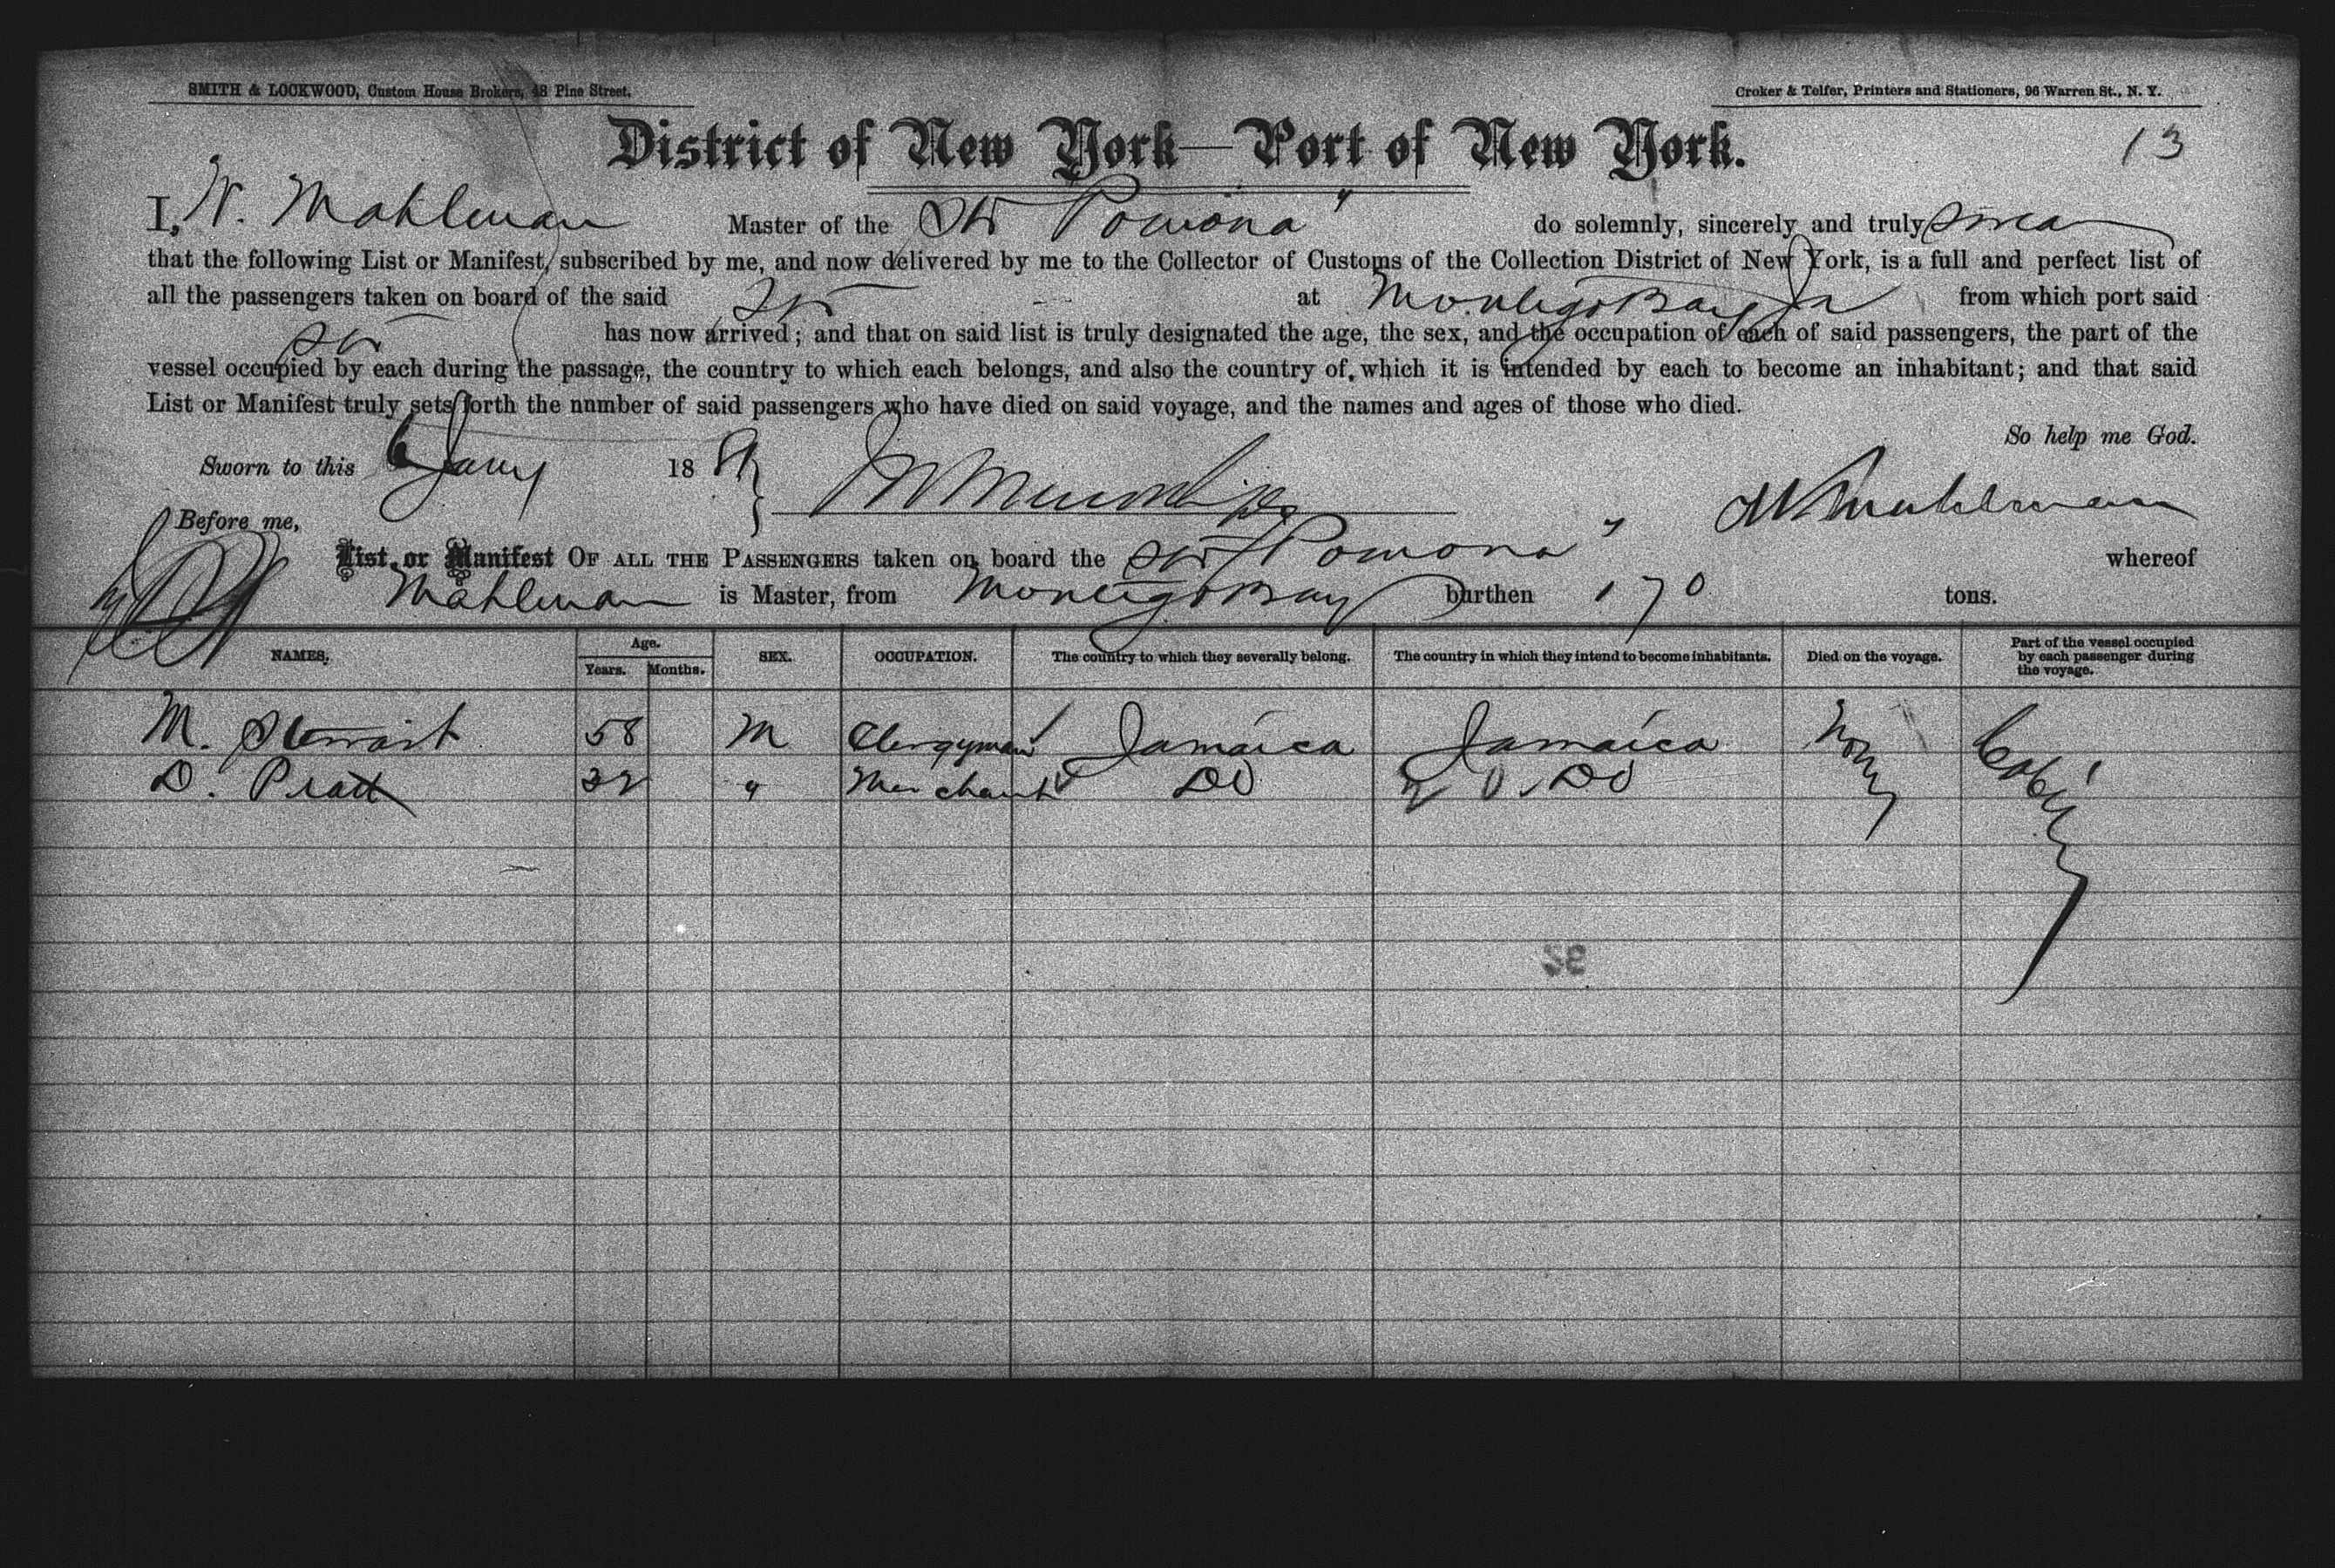 SMITH & LOCKWOOD, Custom House Brokers, 48 Pine Street.
Croker & Telfer, Printers and Stationers, 96 Warren St., N. Y.
13
District of New York—Port of New York.
I, W. Mahlman Master of the Str Pomona" do solemnly, sincerely and truly swear
that the following List or Manifest, subscribed by me, and now delivered by me to the Collector of Customs of the Collection District of New York, is a full and perfect list of
all the passengers taken on board of the said Str at Montego Bay Ja from which port said
Str has now arrived; and that on said list is truly designated the age, the sex, and the occupation of each of said passengers, the part of the
vessel occupied by each during the passage, the country to which each belongs, and also the country of which it is intended by each to become an inhabitant; and that said
List or Manifest truly sets forth the number of said passengers who have died on said voyage, and the names and ages of those who died.
So help me God.
Sworn to this 6 Jany 18
W Mahlman
Before me,
List or Manifest OF ALL THE PASSENGERS taken on board the Str Pomona" whereof
Mahlman is Master, from Montego Bay burthen 170 tons.
NAMES. Age. Years. Months. SEX. OCCUPATION. The country to which they severally belong. The country in which they intend to become inhabitants. Died on the voyage. Part of the vessel occupied by each passenger during the voyage.
M. Stewart 58 M Clergyman Jamaica Jamaica None Cabin
D. Pratt 32 " Merchant Do Do